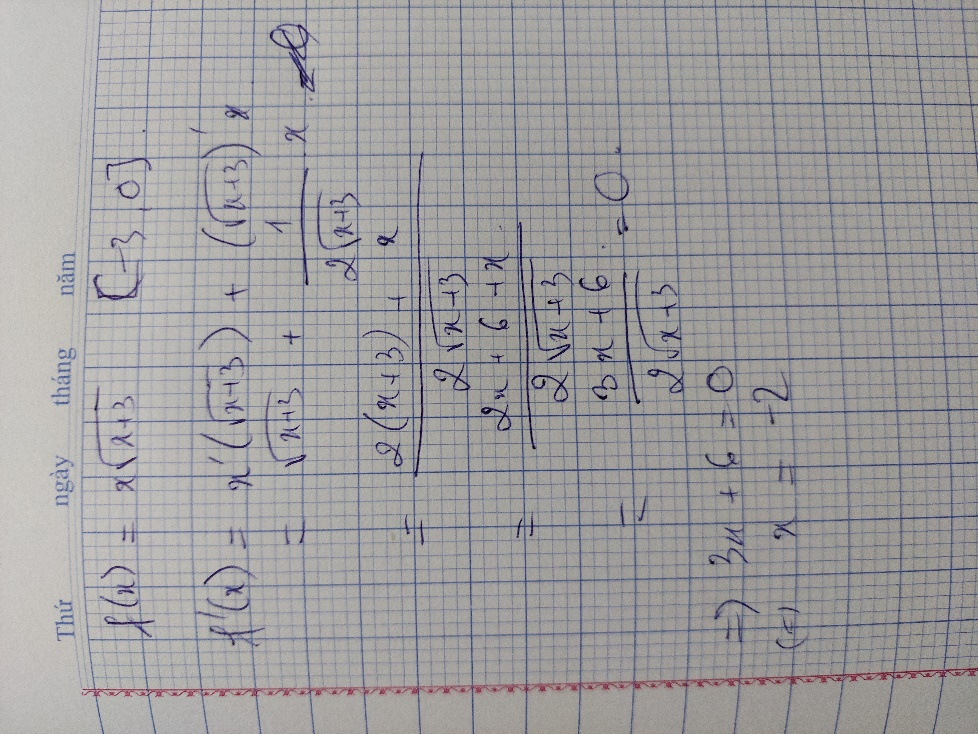 Thứ ngày tháng năm
f(x) = x√(x+3) [-3, 0].
f'(x) = x'(√(x+3)) + (√(x+3))' x
= √(x+3) + 1/(2√(x+3)) . x
= (2(x+3) + x)/(2√(x+3))
= (2x + 6 + x)/(2√(x+3))
= (3x + 6)/(2√(x+3)) = 0.
=> 3x + 6 = 0
(=) x = -2